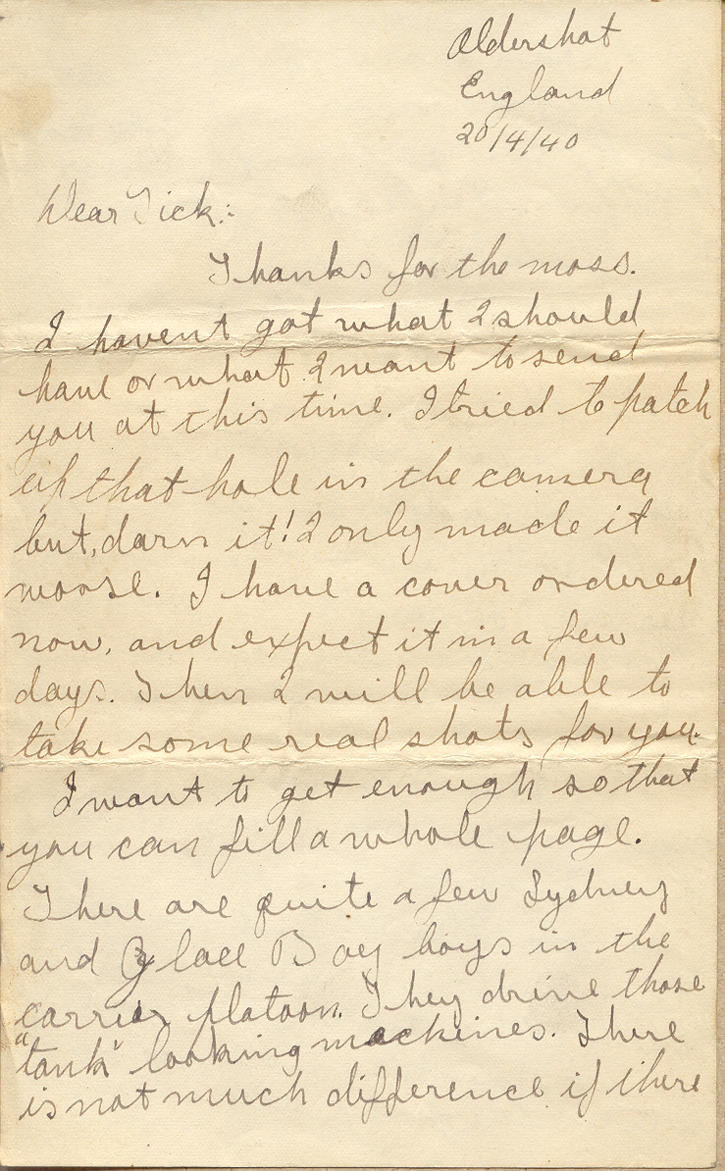 Aldershot
England
20/4/40
Dear Tick:-
Thanks for the moss.
I havent got what I should
have or what I want to send
you at this time. I tried to patch
up that hole in the camera
but, darn it! I only made it
worse. I have a cover ordered
now, and expect it in a few
days. Then I will be able to
take some real shots for you.
I want to get enough so that
you can fill a whole page.
There are quite a few Sydney
and Glace Bay boys in the
carrier platoon. They drive those
"tank" looking machines. There
is not much difference if there